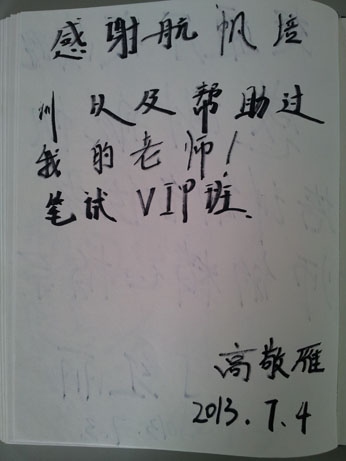 感谢航帆培
训以及帮助过
我的老师！
笔试VIP班
高敬雁
2013.7.4